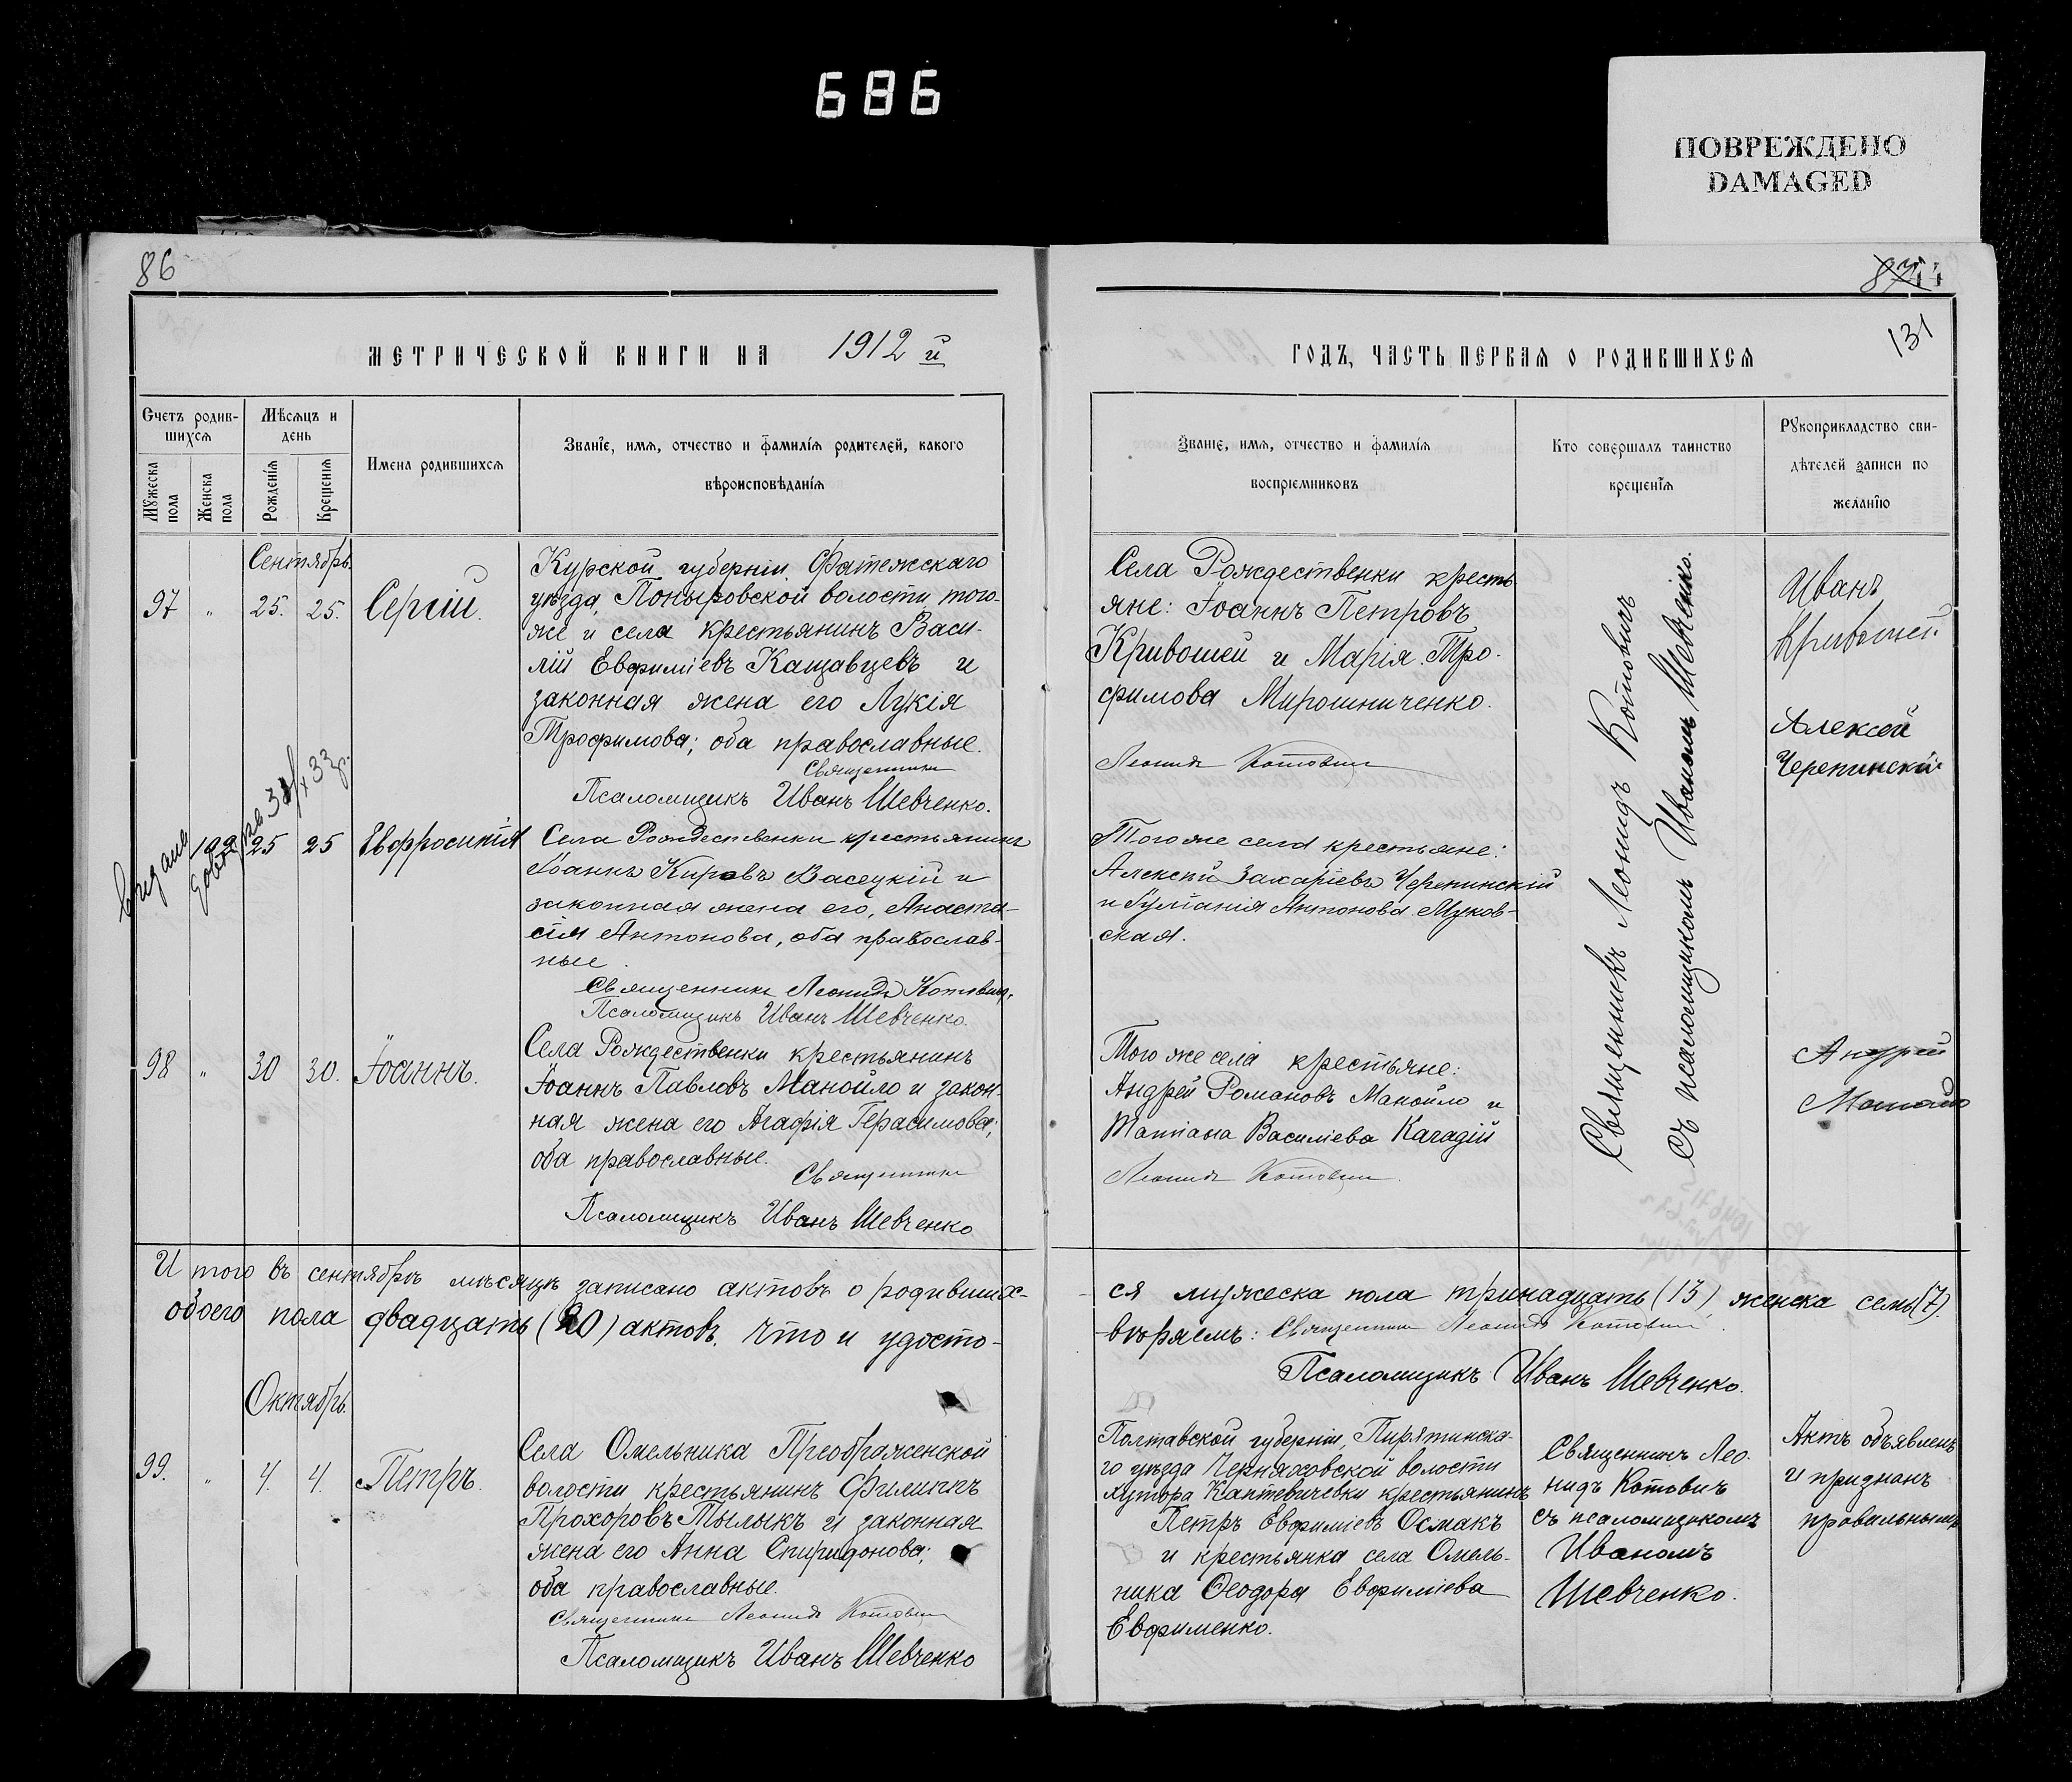 686
ПОВРЕЖДЕНО
DAMAGED
86
МЕТРИЧЕСКОЙ КНИГИ НА 1912 й
Счетъ родив-
шихся
Мѣсяцъ и
день
Мужеска
пола
Женска
пола
Рожденія
Крещенія
Имена родившихся
Званіе, имя, отчество и фамилія родителей, какого
вѣроисповѣданія
Сентябрь.
97 " 25. 25. Сергій.
Курской губерніи, Фатежскаго
уѣзда, Поныровской волости того-
же и села крестьянинъ Васи-
лій Евфиміевъ Кащавцевъ и
законная жена его Лукія
Трофимова; оба православные.
Священникъ
Псаломщикъ Иванъ Шевченко.
25 25 Евфросинія
Села Рождественки крестьянинъ
Іоаннъ Кировъ Васецкій и
законная жена его, Анаста-
сія Антонова, оба православ-
ные.
Священникъ Леонидъ Котовичъ.
Псаломщикъ Иванъ Шевченко.
98 " 30 30. Іоаннъ.
Села Рождественки крестьянинъ
Іоаннъ Павловъ Манойло и закон-
ная жена его Агафія Герасимова;
оба православные.
Священникъ
Псаломщикъ Иванъ Шевченко
Итого въ сентябрѣ мѣсяцѣ записано актовъ о родивших-
обоего пола двадцать (20) актовъ. Что и удосто-
Октябрь.
99. " 4. 4. Петръ.
Села Омельника Преображенской
волости крестьянинъ Филиппъ
Прохоровъ Тылыкъ и законная
жена его Анна Спиридонова;
оба православные.
Священникъ Леонидъ Котовичъ
Псаломщикъ Иванъ Шевченко
131
ГОДЪ, ЧАСТЬ ПЕРВАЯ О РОДИВШИХСЯ
Званіе, имя, отчество и фамилія
воспріемниковъ
Кто совершалъ таинство
крещенія
Рукоприкладство сви-
дѣтелей записи по
желанію
Села Рождественки кресть-
яне: Іоаннъ Петровъ
Кривошей и Марія Тро-
фимова Мирошниченко.
Леонидъ Котовичъ
Иванъ
Кривошей.
Алексей
Черепинскій
Тогоже села крестьяне:
Алексій Захаріевъ Черепинскій
и Іуліанія Антонова Муков-
ская.
Священникъ Леонидъ Котовичъ
съ псаломщикомъ Иваномъ Шевченко.
Того же села крестьяне:
Андрей Романовъ Манойло и
Татіана Василіева Карадій
Леонидъ Котовичъ.
Андрей
Манойло
ся мужеска пола тринадцать (13), женска семь (7).
вѣряемъ: Священникъ Леонидъ Котовичъ.
Псаломщикъ Иванъ Шевченко.
Полтавской губерніи, Пирятинска-
го уѣзда Черняховской волости
хутора Каптевичевки крестьянинъ
Петръ Евфиміевъ Осмакъ
и крестьянка села Омель-
ника Ѳеодора Евфиміева
Евфименко.
Священникъ Лео-
нидъ Котовичъ
съ псаломщикомъ
Иваномъ
Шевченко.
Актъ объявленъ
и признанъ
правильнымъ